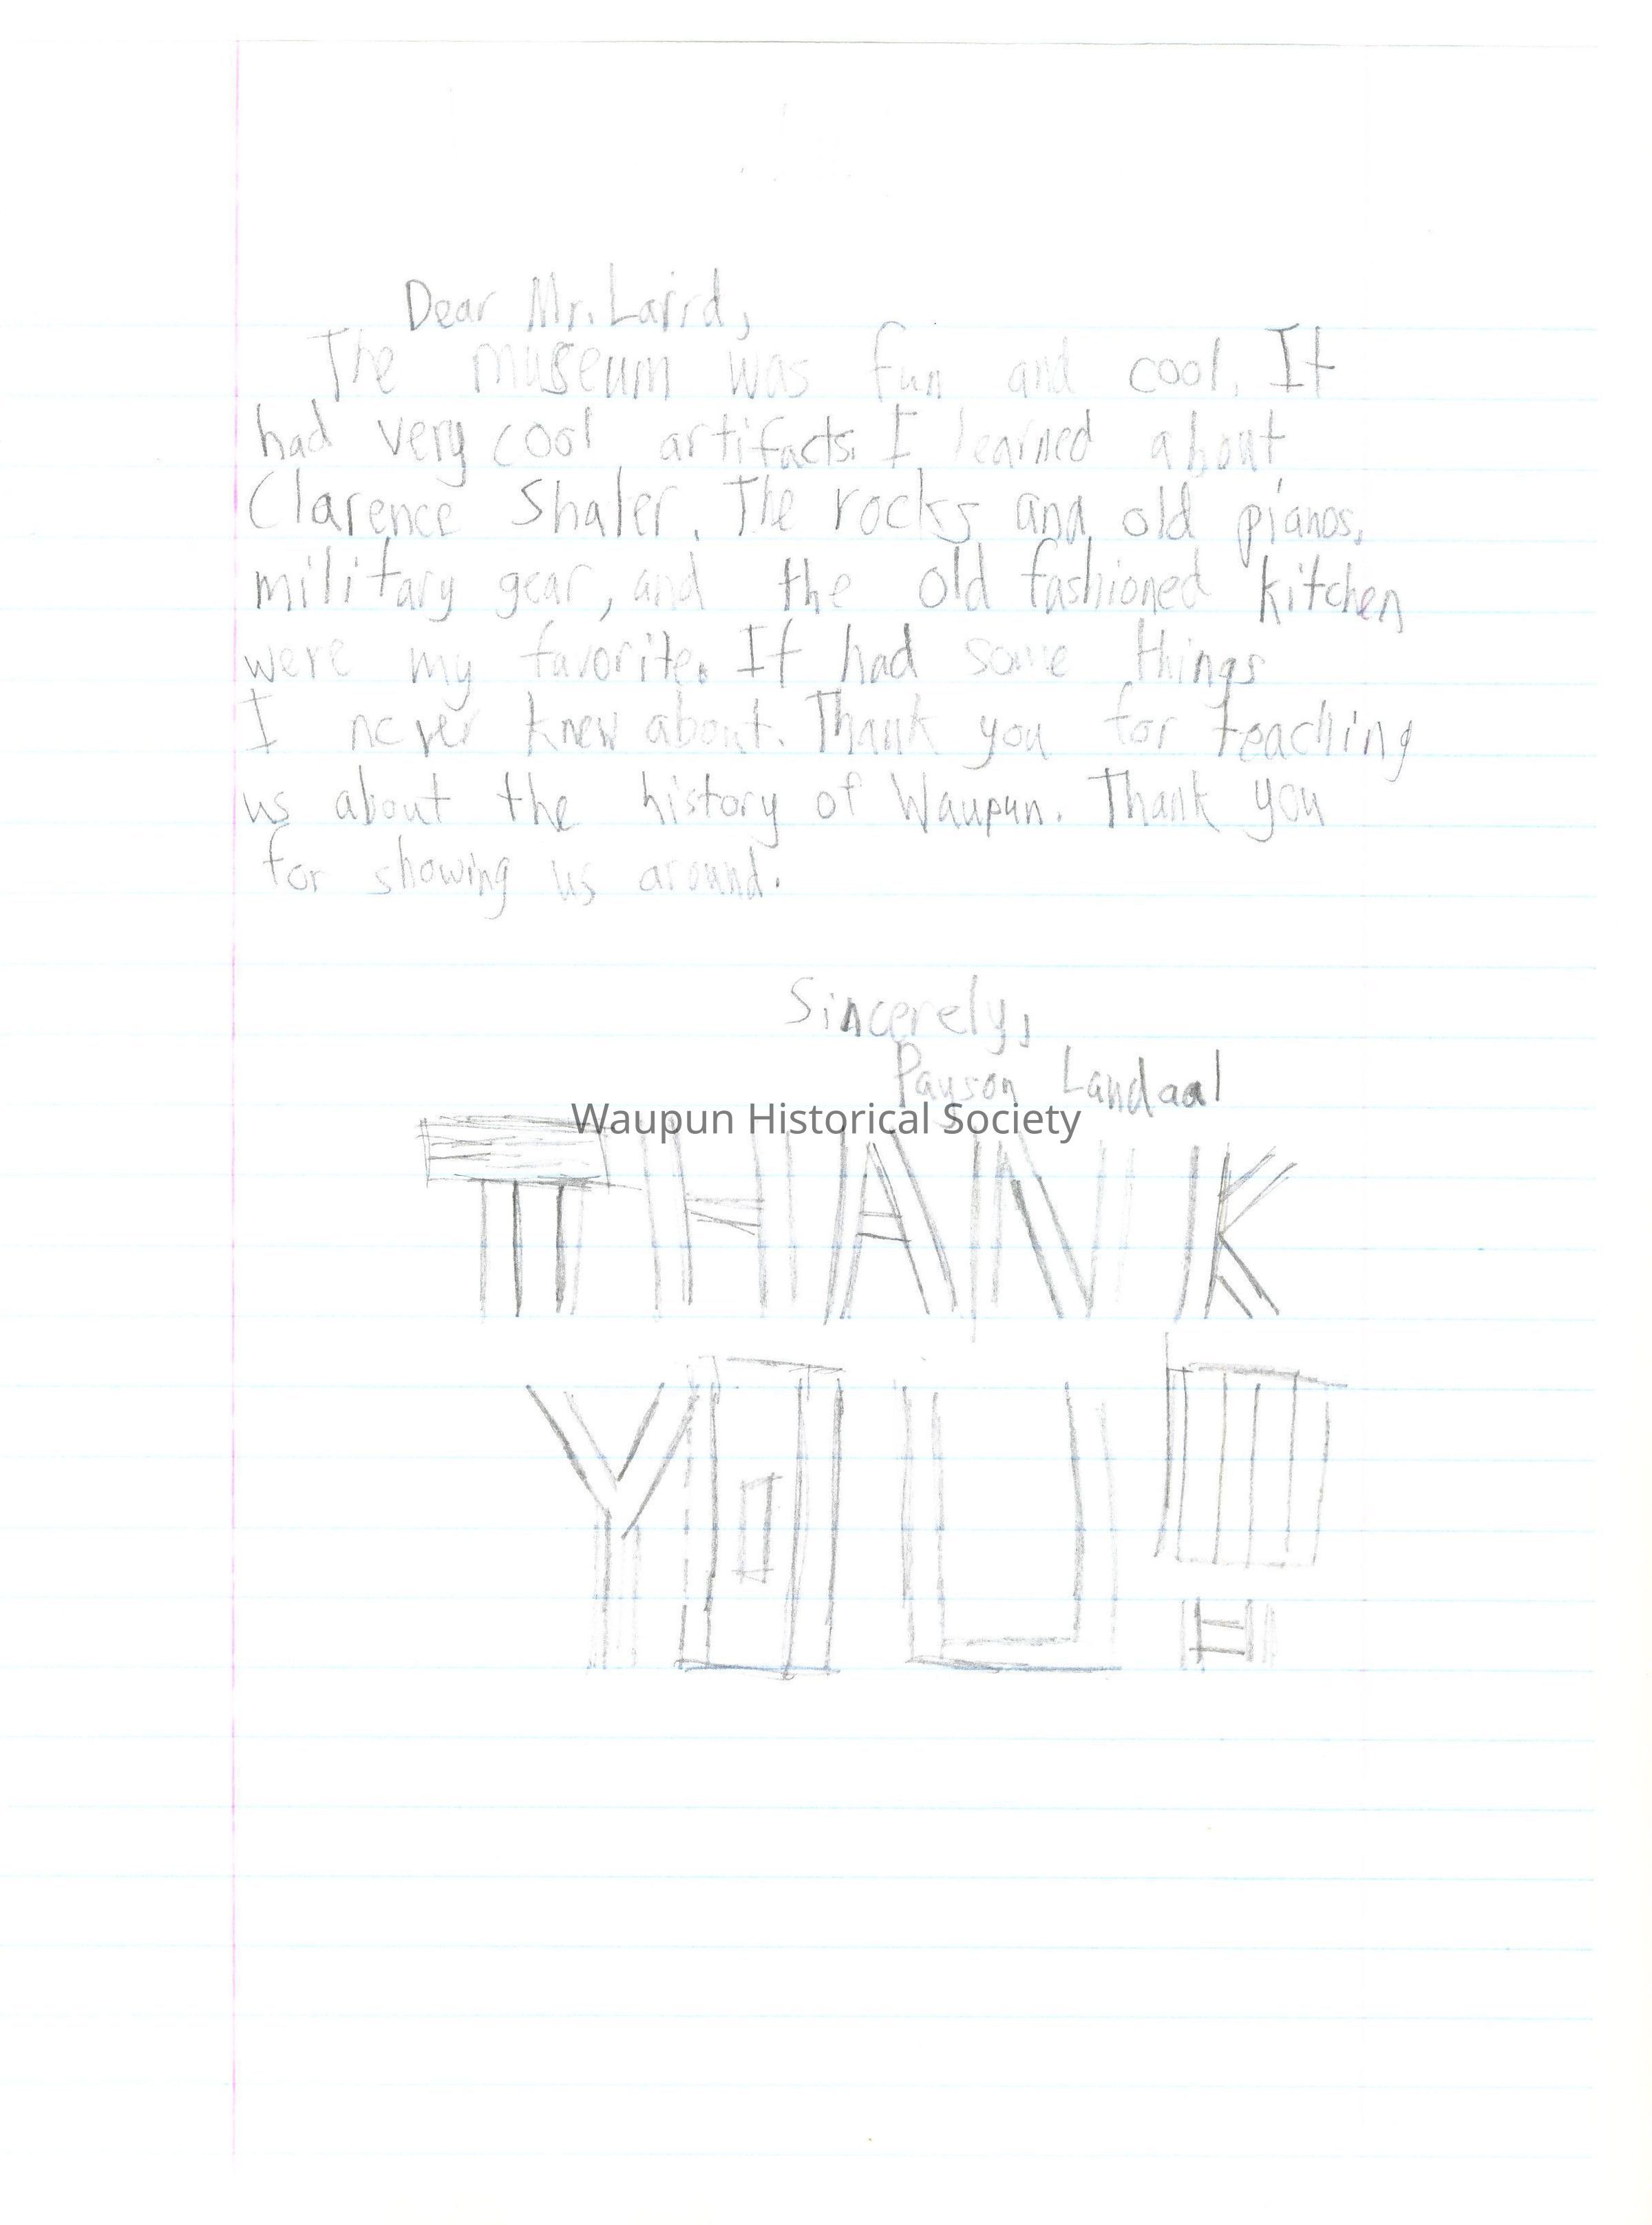 Dear Mr. Laird,
The museum was fun and cool. It
had very cool artifacts. I learned about
Clarence Shaler. The rocks and old pianos,
military gear, and the old fashioned kitchen
were my favorite. It had some things
I never knew about. Thank you for teaching
us about the history of Waupun. Thank you
for showing us around.
Sincerely,
Payson Landaal
Waupun Historical Society
THANK
YOU!